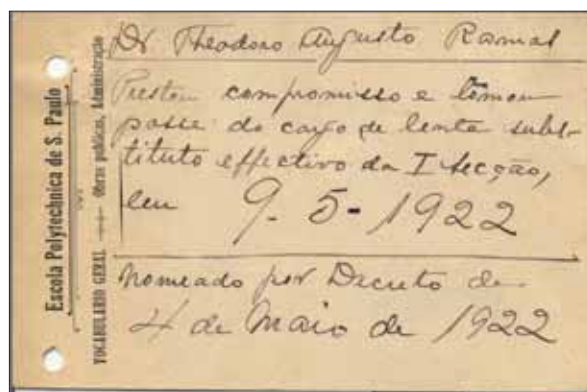 Escola Polytechnica de S. Paulo
VOCABULARIO GERAL — Obras publicas, Administração
Dr Theodoro Augusto Ramos
Prestou compromisso e tomou
posse do cargo de lente subs-
tituto effectivo da I secção,
em 9-5-1922
Nomeado por Decreto de
4 de Maio de 1922